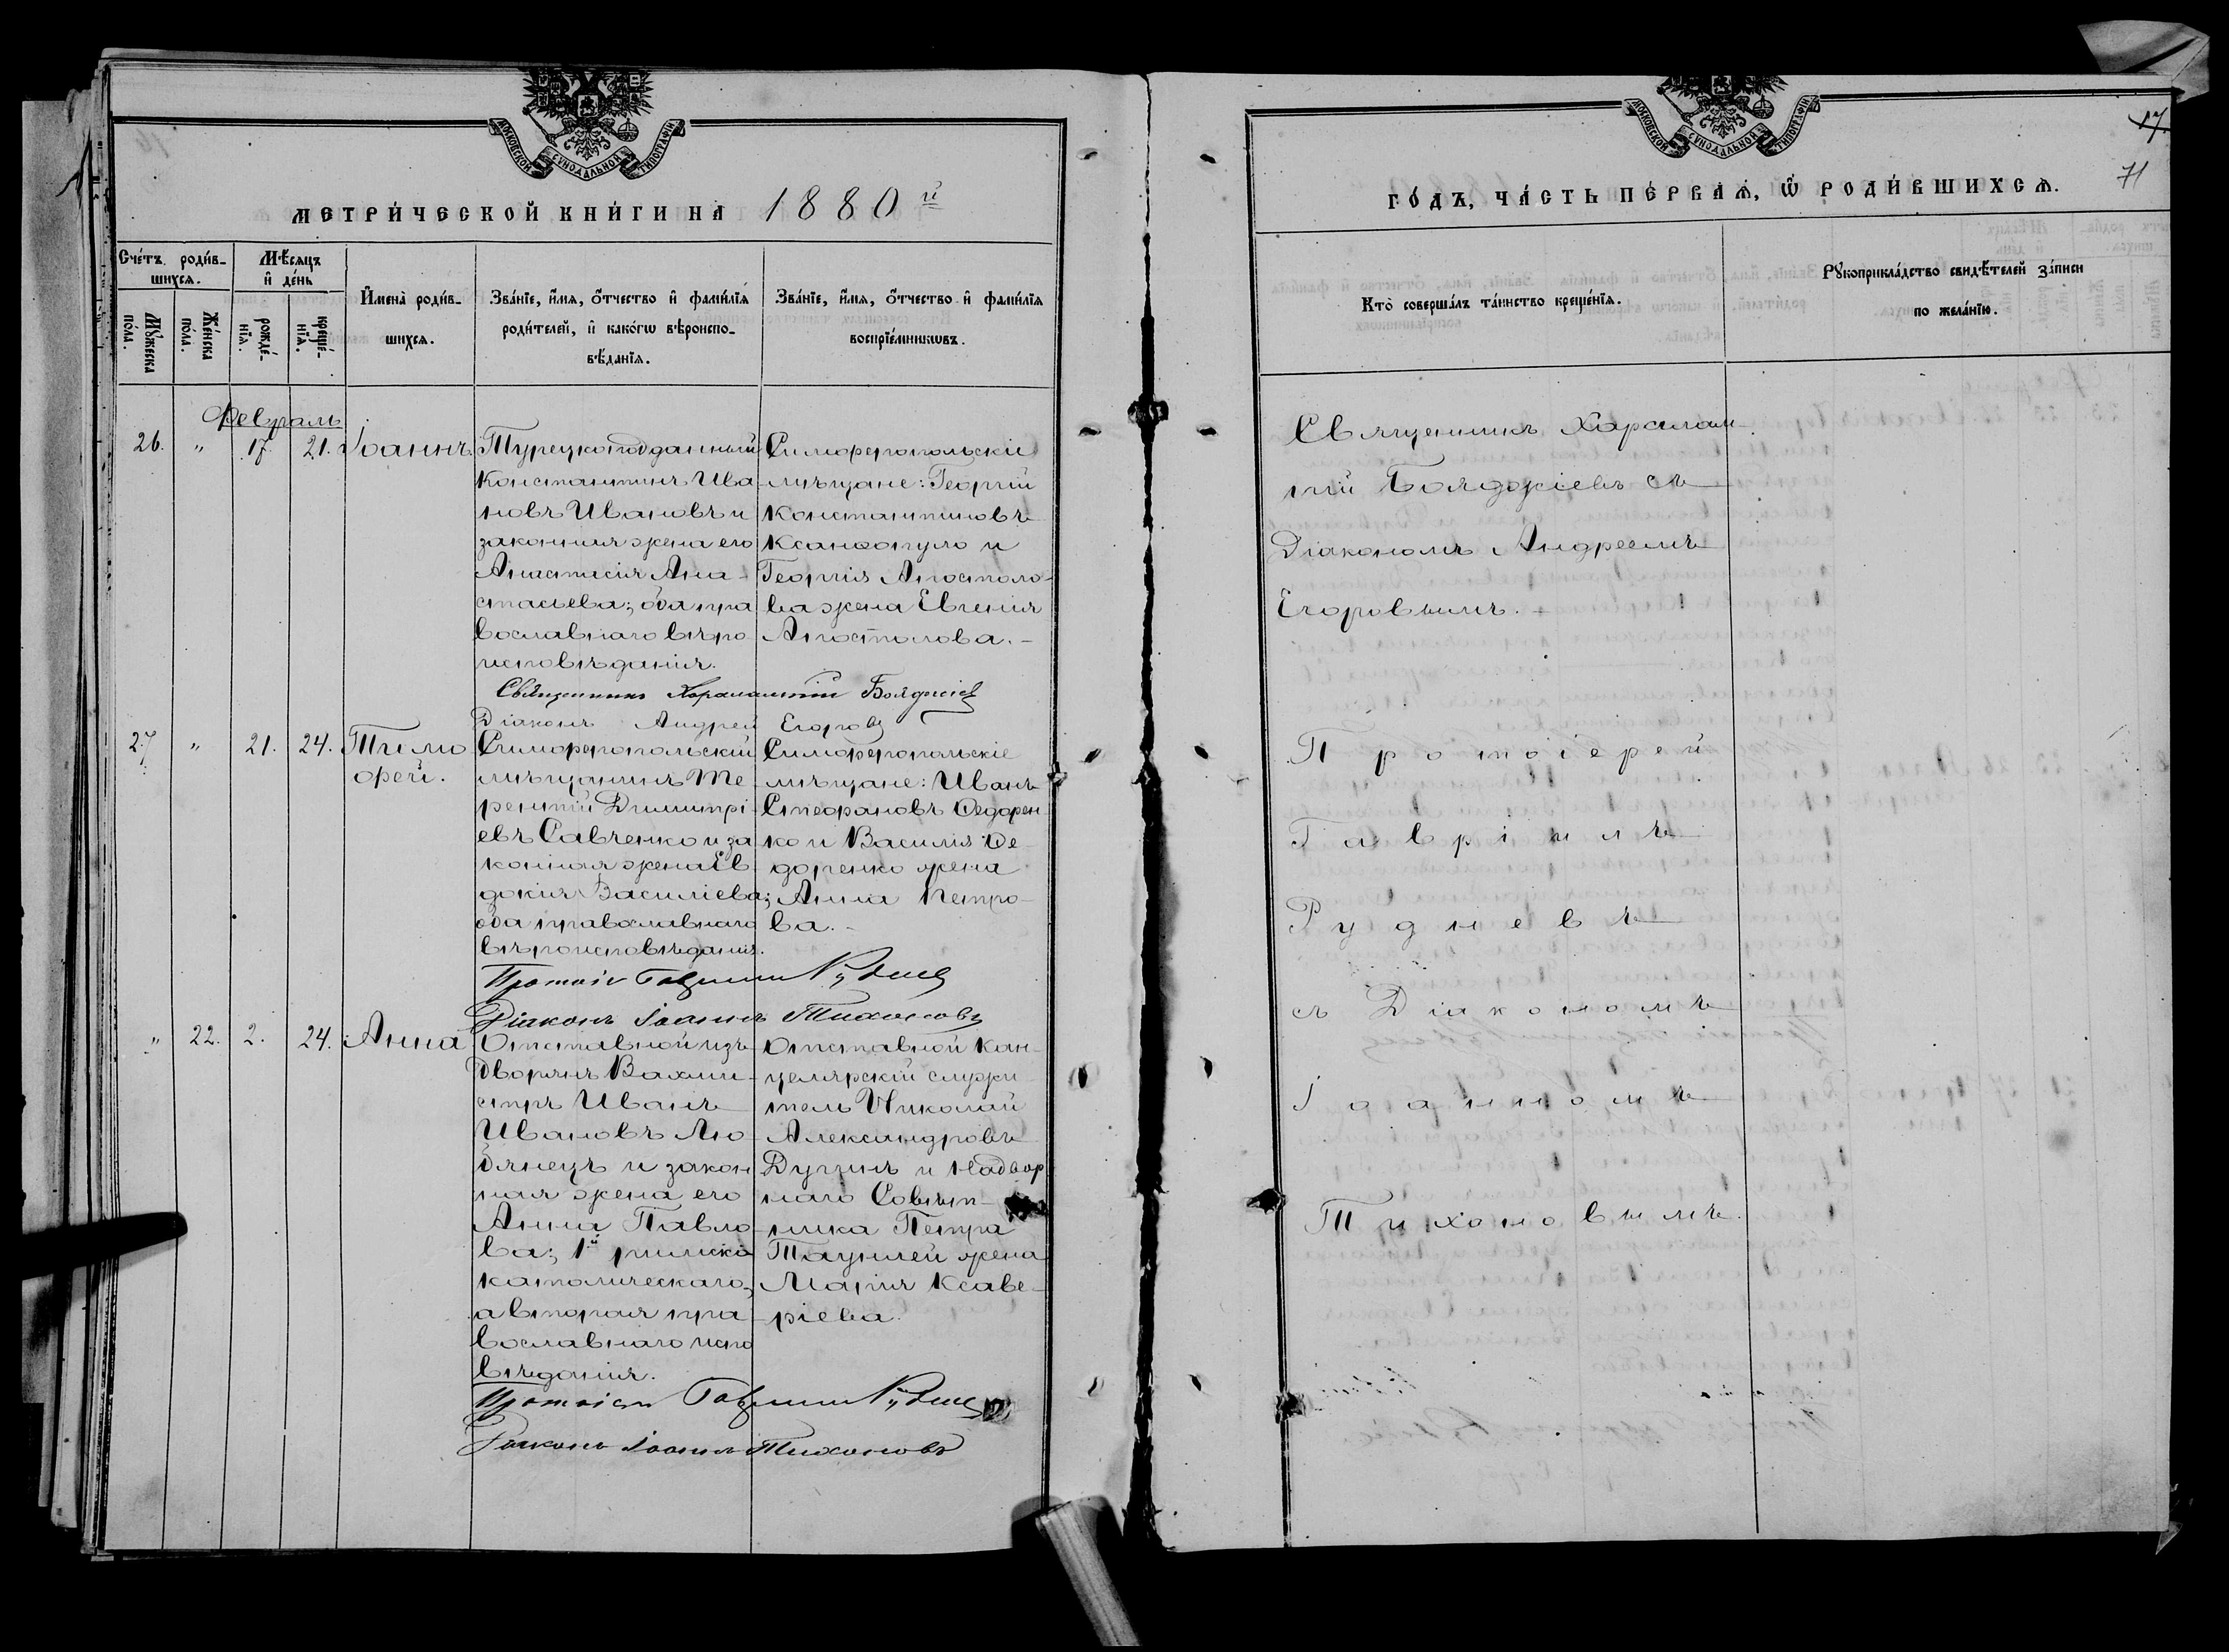 МОСКОВСКОЙ СУНОДАЛЬНОЙ ТИПОГРАФІИ
МЕТРИ́ЧЕСКОЙ КНИ́ГИ НА 1880й
Сче́тъ роди́в-
шихся.
Мѣсяцъ
и҆ де́нь
Мꙋ́жеска
по́ла.
Же́нска
по́ла.
рожде́-
нїѧ.
креще́-
нїѧ.
И҆мена̀ роди́в-
шихся.
Зва́нїе, и҆́мѧ, ѻ҆́тчество и҆ фами́лїѧ
роди́телей, и҆ како́гѡ вѣроиспо-
вѣ́данїѧ.
Зва́нїе, и҆́мѧ, ѻ҆́тчество и҆ фами́лїѧ
воспрїе́мникѡвъ.
Февраль
26. " 17. 21. Іоаннъ
Турецкоподданный
Константинъ Ива-
новъ Ивановъ и
законная жена его
Анастасія Ана-
стасьева; оба пра
вославнаго вѣро
исповѣданія.
Симферопольскіе
мѣщане: Георгій
Константиновъ
Ксанѳопуло и
Георгія Апостоло-
ва жена Евгенія
Апостолова.-
Священникъ Харалампій Бояджіев
Діаконъ Андрей Егоровъ
27 " 21. 24. Тимо
ѳей.
Симферопольскій
мѣщанинъ Те
рентій Димитрі-
евъ Савченко и за
конная жена Ев
докія Василіева;
оба православнаго
вѣроисповѣданія.
Симферопольскіе
мѣщане: Иванъ
Стефановъ Федорен
ко и Василія Фе
доренко жена
Анна Петро-
ва.-
Протоіе Гавріилъ Руднев
Діаконъ Іоаннъ Тихоновъ
" 22. 2. 24. Анна
Отставной изъ
Дворянъ Вахми-
стръ Иванъ
Ивановъ Лю-
бянецъ и закон
ная жена его
Анна Павло-
ва; 1й римско
католическаго,
а вторая пра-
вославнаго испо
вѣданія.
Отставной Кан-
целярскій служи
тель Николай
Александровъ
и Надвор
наго Совѣт-
ника Петра
жена
Марія Ксаве-
ріева.
Протоіер Гавріилъ Руднев
Діаконъ Іоаннъ Тихоновъ
МОСКОВСКОЙ СУНОДАЛЬНОЙ ТИПОГРАФІИ
17.
71
ГО́ДЪ, ЧА́СТЬ ПЕ́РВАѦ, Ѽ РОДИ́ВШИХСѦ.
Кто̀ соверша́лъ та́инство креще́нїѧ.
Рꙋкоприкла́дство свидѣ́телей за́писи
по жела́нїю.
Священникъ Харалам-
пій Бояджіевъ съ
Діакономъ Андреемъ
Егоровымъ.
Протоіерей
Гавріилъ
Рудневъ
съ Діакономъ
Іоанномъ
Тихоновымъ.